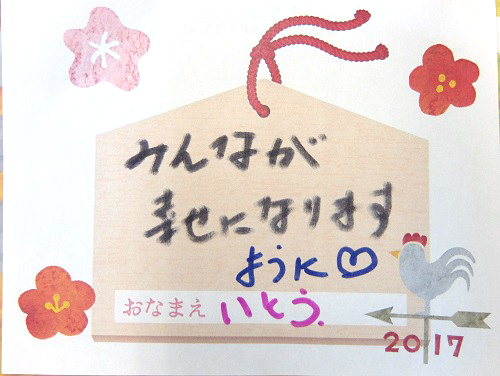 みんなが
幸せになります
ように♡
おなまえ いとう.
2017